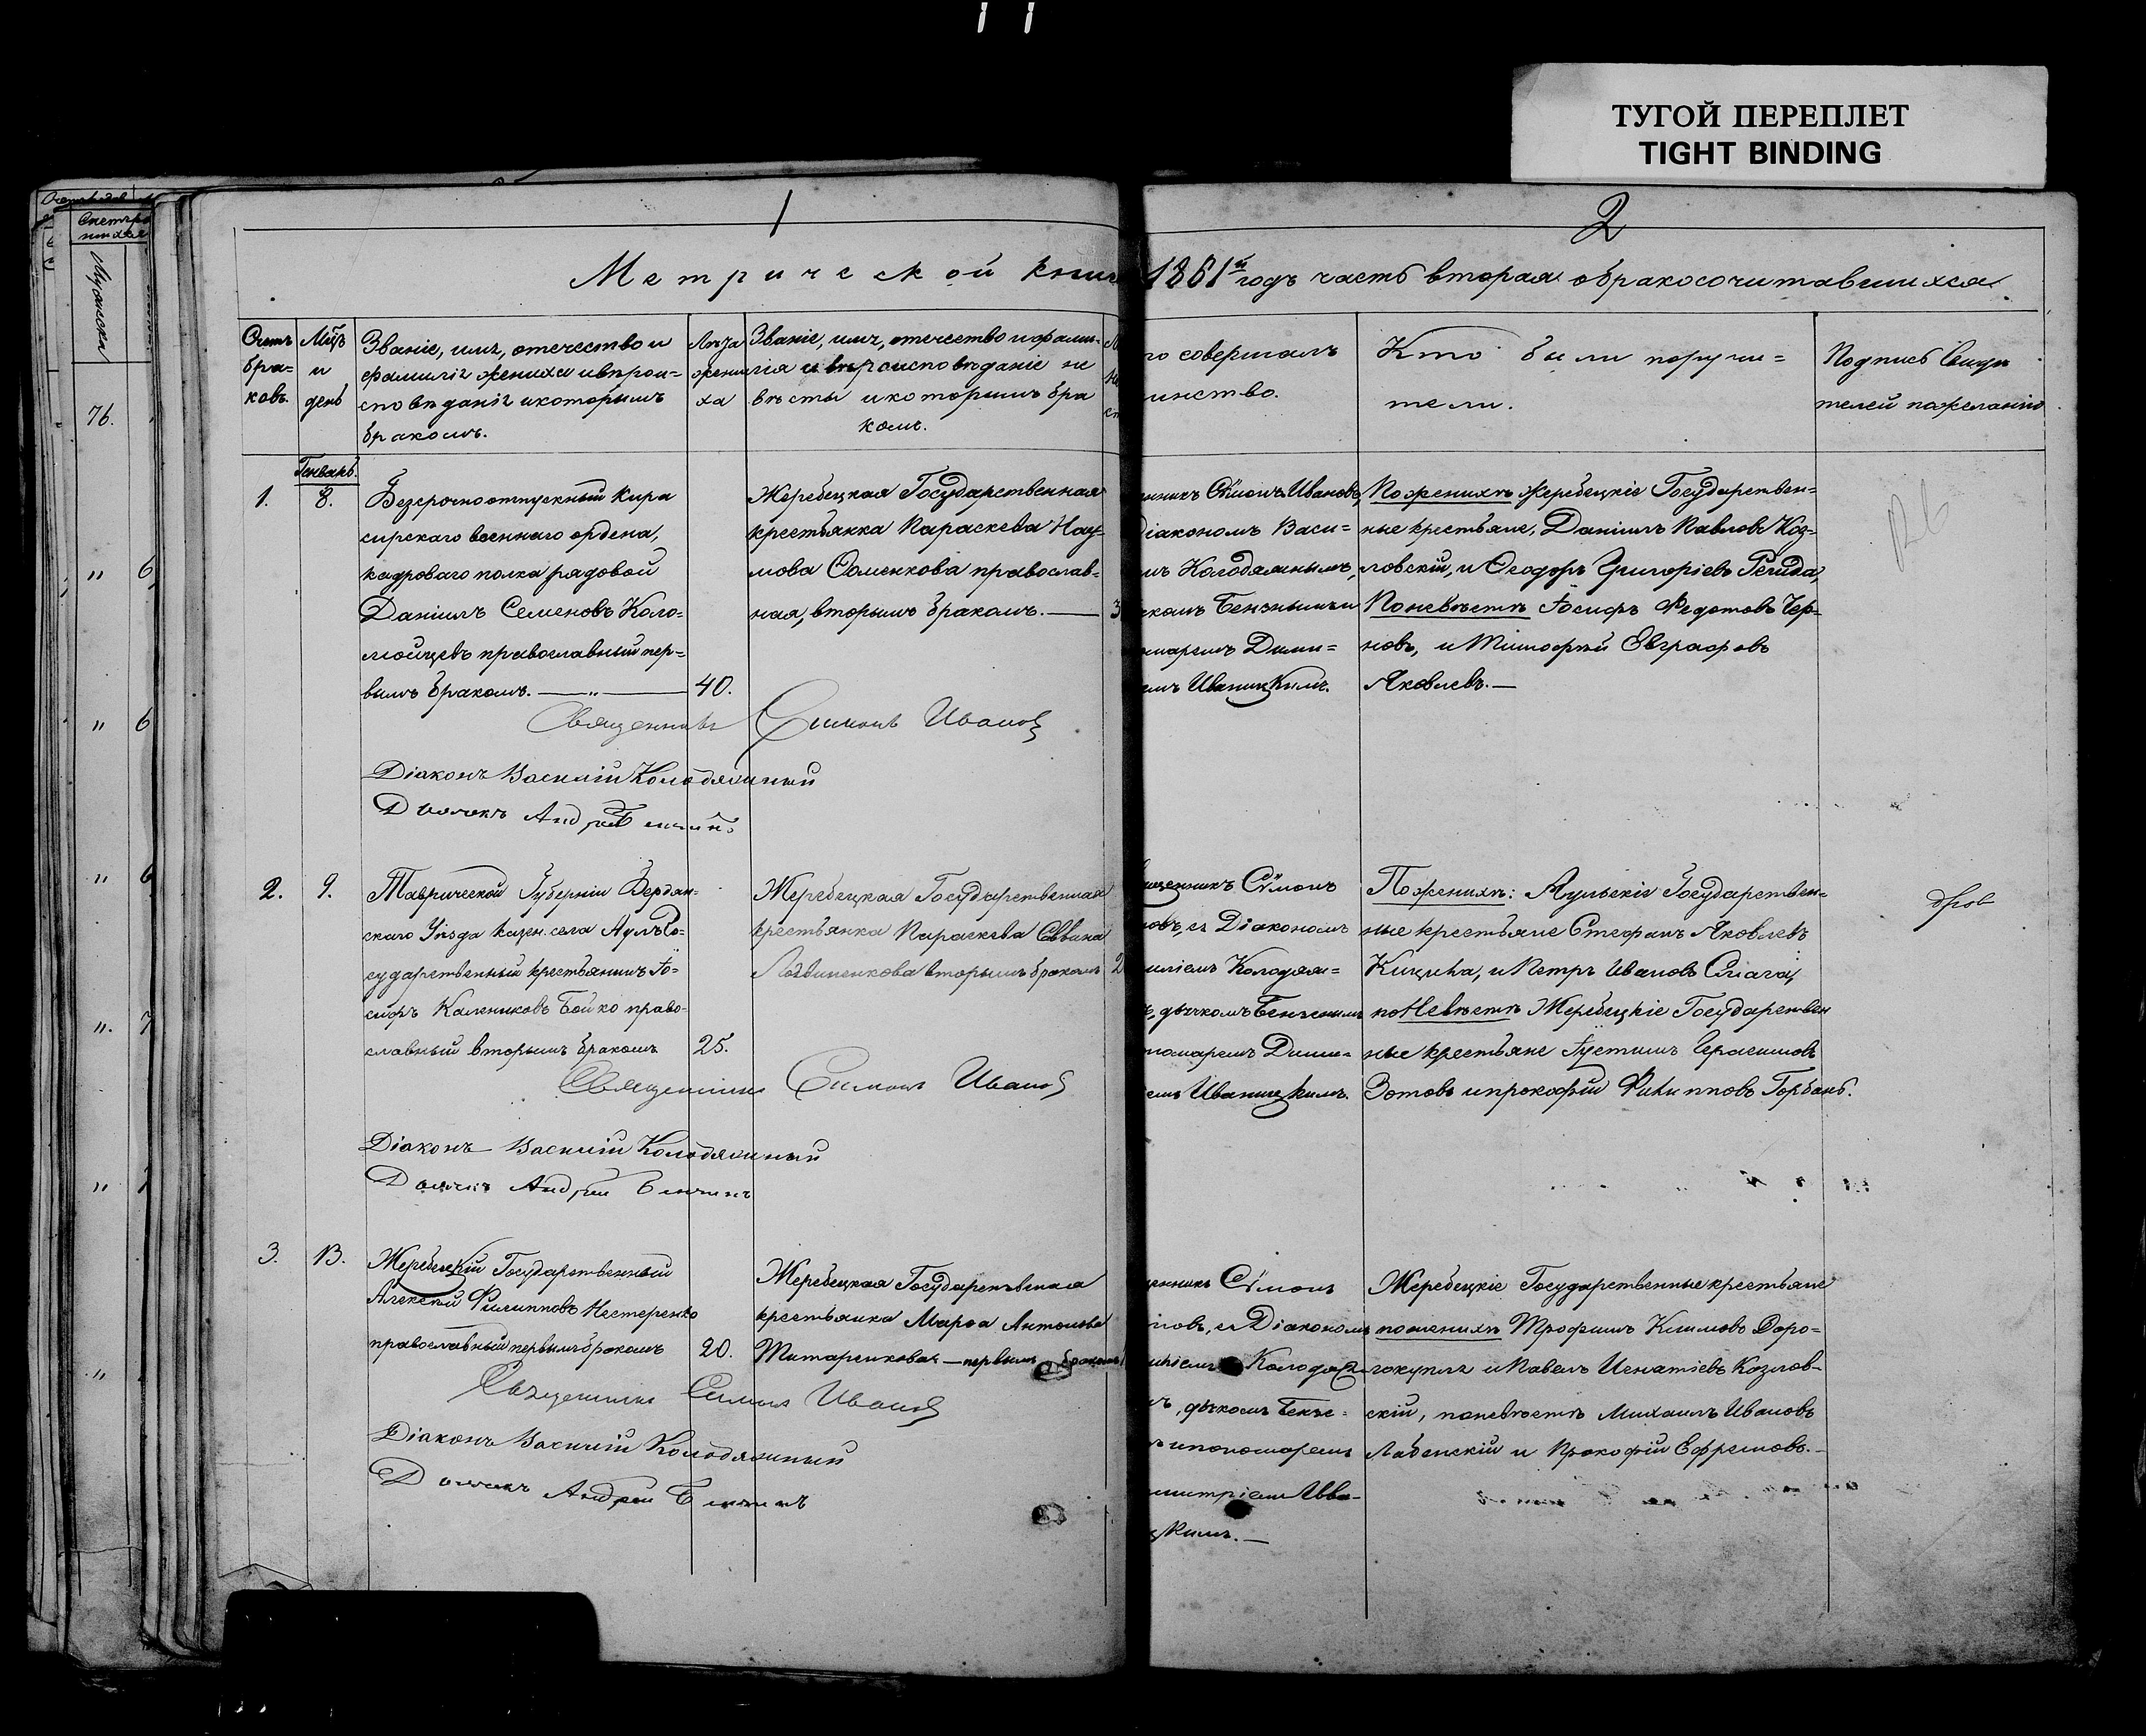 ТУГОЙ ПЕРЕПЛЕТ
TIGHT BINDING
1
2
Метрической книг
1861й годъ часть вторая о бракосочитавшихся
Счетъ бра= ковъ.
Мѣцъ и день
Званіе, имя, отечество и
фамилія жениха и вѣрои=
сповѣданія и которымъ
бракомъ.
Лѣта жени ха
Званіе, имя, отечество и фами=
лія и вѣроисповѣданіе не
вѣсты и которымъ бра
комъ.
го совершалъ
инство.
Кто были поручи=
тели.
Подпись свидѣ
телей по желанію
76.
Генварь.
1.
8.
Безсрочноотпускный Кира
сирскаго военнаго ордена,
кадроваго полка рядовой
Даніилъ Семеновъ Коло=
мойцевъ православный пер=
вымъ бракомъ. — „ — 40.
Жеребецкая Государственная
крестьянка Параскева Нау=
мова Соменкова православ=
ная, вторымъ бракомъ. — 3
нникъ Сѵмонъ Ивановъ,
Діакономъ Васи=
мъ Колодяжнымъ,
комъ Бензнымъ и
омаремъ Дими=
емъ Иваницкимъ.
По женихѣ Жеребецкіе Государствен=
ные крестьяне, Даніилъ Павловъ Коз=
ловскій, и Ѳеодоръ Григорієвъ Регида,
По невѣстѣ Іосифъ Федотовъ Чер=
новъ, и Тимофѣй Евграфовъ
Яковлевъ. —
Священникъ Симонъ Ивановъ
Діаконъ Василій Колодяжный
Дьячекъ Андрей
2.
9.
Таврической Губерніи Бердян=
скаго Уѣзда казен. села Аулъ Го=
сударственный крестьянинъ Іо=
сифъ Калениковъ Бойко право=
славный вторымъ бракомъ 25.
Жеребецкая Государственная
крестьянка Параскева Саввина
Логвиненкова вторымъ бракомъ 2
щенникъ Сѵмонъ
новъ, съ Діакономъ
иліемъ Колодяж=
ъ, дьячкомъ
номаремъ Дими=
емъ Иваницкимъ.
По женихѣ: Аульскіе Государствен=
ные крестьяне Стефанъ Яковлевъ
Кицина, и Петръ Ивановъ Смага,
по Невѣстѣ Жеребецкіе Государствен
ные крестьяне Іустинъ Герасимовъ
Зотовъ и прокофій Филипповъ Горбань.
Священникъ Симонъ Ивановъ
Діаконъ Василій Колодяжный
Дьячекъ Андрей
3.
13.
Жеребецкій Государственный
Алексѣй Филипповъ Нестеренко
православный первымъ бракомъ 20.
Жеребецкая Государственная
крестьянка Марѳа Антонова
Титаренкова — первымъ бракомъ
щенникъ Сѵмонъ
новъ, съ Діакономъ
иліемъ Колодяж=
ъ, дьчкомъ Бенze=
ъ и пономаремъ
митріемъ Ива=
цкимъ. —
Жеребецкіе Государственные крестьяне
по женихѣ Трофимъ Климовъ Доро=
гокупля и Павелъ Игнатіевъ Козлов=
скій, по невѣстѣ Михаилъ Ивановъ
Лабенскій и Прокофій Ефремовъ. —
Священникъ Симонъ Ивановъ
Діаконъ Василій Колодяжный
Дьячекъ Андрей